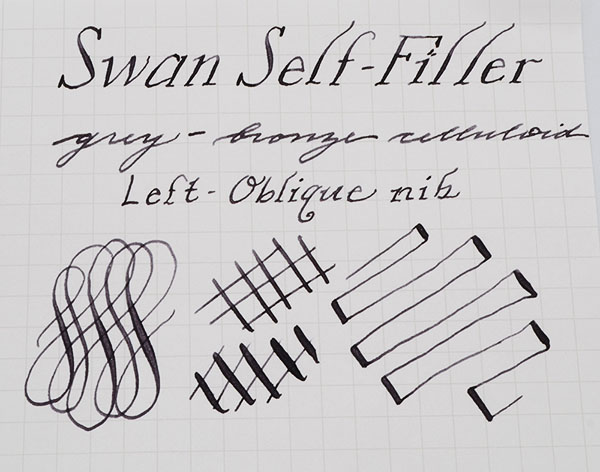 Swan Self-Filler
grey - bronze celluloid
Left-Oblique nib